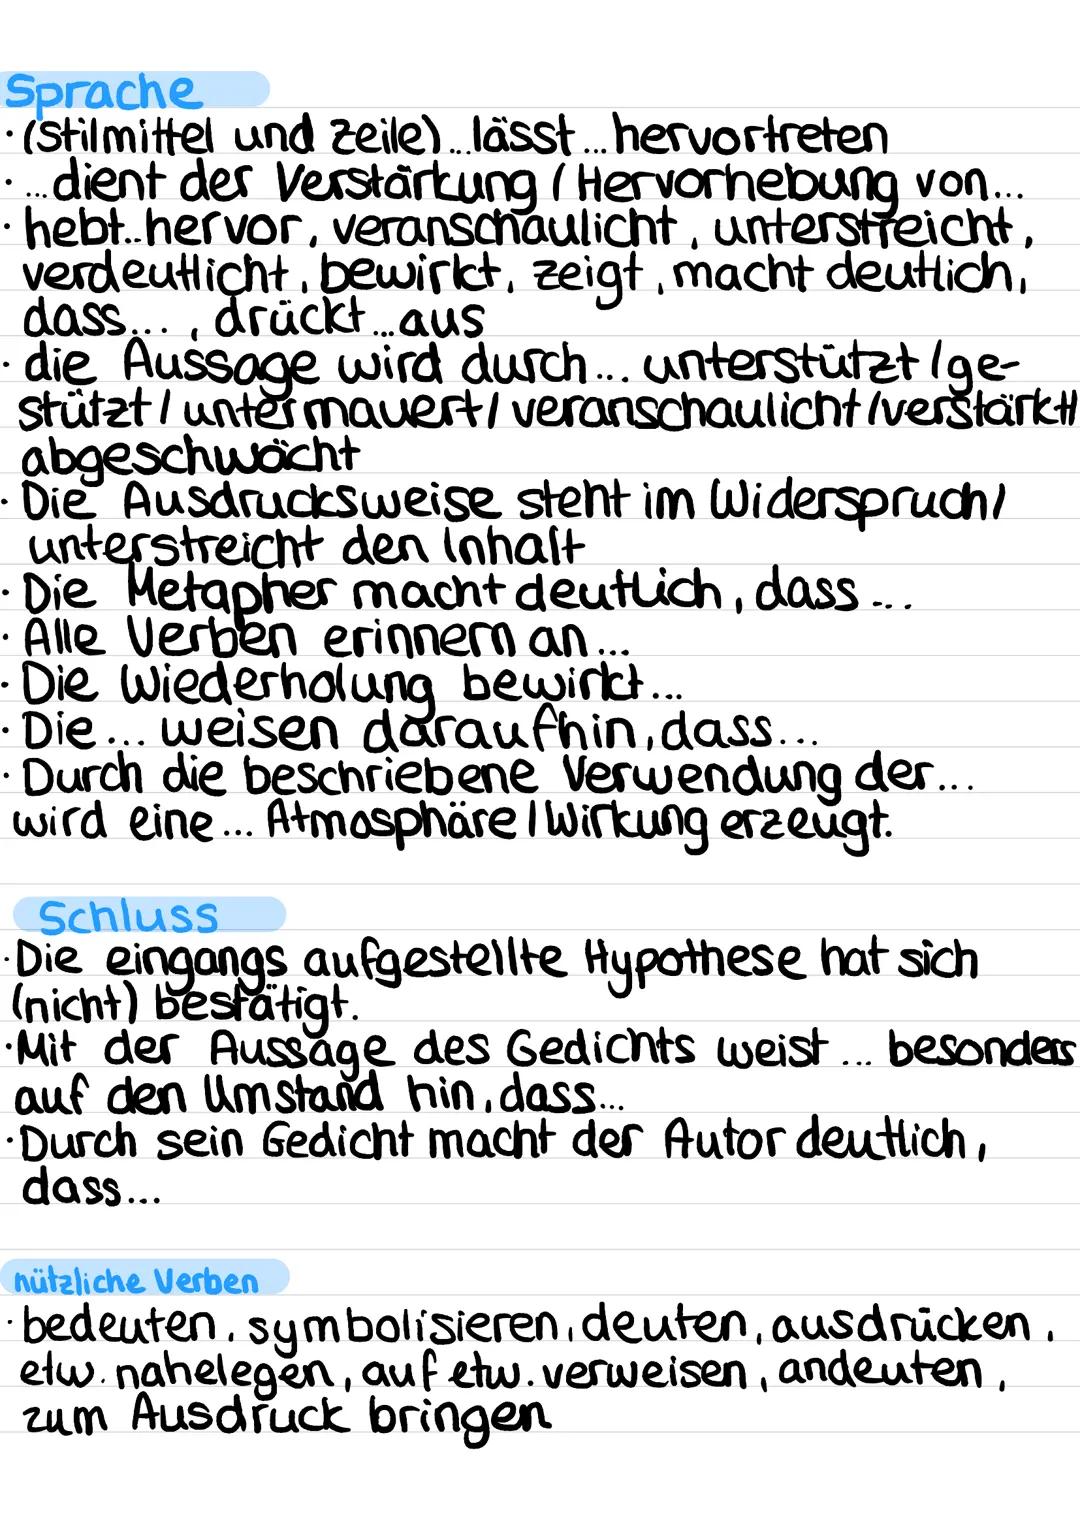 Sprache
· (Stilmittel und Zeile)...lässt...hervortreten
· ...dient der Verstärkung / Hervorhebung von...
· hebt...hervor, veranschaulicht, unterstreicht,
verdeutlicht, bewirkt, zeigt, macht deutlich,
dass..., drückt...aus
· die Aussage wird durch... unterstützt / ge-
stützt / untermauert / veranschaulicht / verstärkt /
abgeschwächt
· Die Ausdrucksweise steht im Widerspruch /
unterstreicht den Inhalt
· Die Metapher macht deutlich, dass...
· Alle Verben erinnern an...
· Die Wiederholung bewirkt...
· Die... weisen daraufhin, dass...
· Durch die beschriebene Verwendung der...
wird eine... Atmosphäre / Wirkung erzeugt.
Schluss
· Die eingangs aufgestellte Hypothese hat sich
(nicht) bestätigt.
· Mit der Aussage des Gedichts weist... besonders
auf den Umstand hin, dass...
· Durch sein Gedicht macht der Autor deutlich,
dass...
nützliche Verben
· bedeuten, symbolisieren, deuten, ausdrücken,
etw. nahelegen, auf etw. verweisen, andeuten,
zum Ausdruck bringen